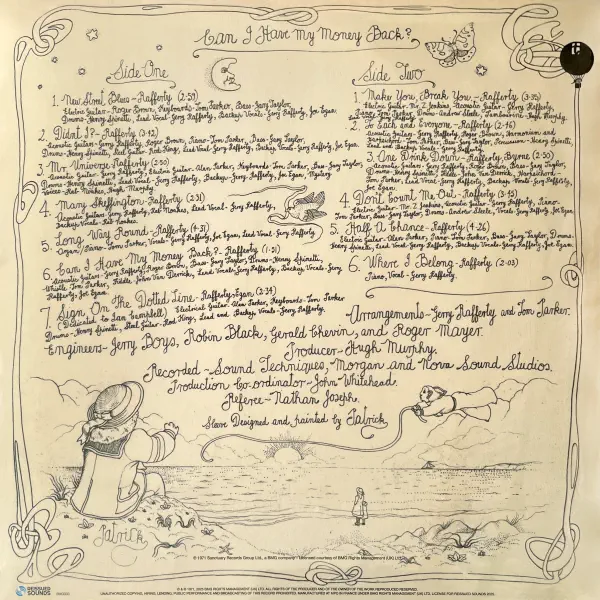 Can I Have my Money Back?
Side One
1. New Street Blues - Rafferty (2:59)
Electric Guitar - Roger Brown, Keyboards - Tom Parker, Bass - Gary Taylor,
Drums - Henry Spinetti, Lead Vocal - Gerry Rafferty, Backup Vocals - Gerry Rafferty, Joe Egan.
2. Didn't I? - Rafferty (3:42)
Acoustic Guitar - Gerry Rafferty, Roger Brown, Piano - Tom Parker, Bass - Gary Taylor,
Drums - Henry Spinetti, Steel Guitar - Rod King, Lead Vocal - Gerry Rafferty, Backup Vocals - Gerry Rafferty, Joe Egan.
3. Mr. Universe - Rafferty (2:50)
Acoustic Guitar - Gerry Rafferty, Electric Guitar - Alan Parker, Keyboards Tom Parker, Bass - Gary Taylor,
Drums - Henry Spinetti, Lead Vocal - Gerry Rafferty, Backup - Gerry Rafferty, Joe Egan, Mystery
Voices - Rab Noakes, Hugh Murphy.
4. Mary Skeffington - Rafferty (2:31)
Acoustic Guitar - Gerry Rafferty, Rab Noakes, Lead Vocal - Gerry Rafferty,
Backup Vocals - Rab Noakes.
5. Long Way Round - Rafferty (4:31)
Organ/Piano - Tom Parker, Vocals - Gerry Rafferty, Joe Egan, Lead Vocal - Gerry Rafferty.
6. Can I Have My Money Back? - Rafferty (1:51)
Acoustic Guitar - Gerry Rafferty, Roger Brown, Bass - Gary Taylor, Drums - Henry Spinetti,
Whistle Tom Parker, Fiddle John Van Derrick, Lead Vocals - Gerry Rafferty, Backup Vocals - Gerry
Rafferty, Joe Egan.
7. Sign On The Dotted Line - Rafferty, Egan (2:34)
(Dedicated to Ian Campbell) Electrical Guitar - Alan Parker, Keyboards - Tom Parker
Drums - Henry Spinetti, Steel Guitar - Rod King, Lead and Backup, Vocals - Gerry Rafferty.
Side Two
1. Make You, Break You - Rafferty
Electric Guitar - Mr. 2 Jenkins, Acoustic Guitar - Gerry Rafferty,
Piano - Tom Parker, Drums - Andrew Steele, Tambourine - Hugh Murphy.
2. To Each and Everyone - Rafferty (2:46)
Acoustic Guitar - Gerry Rafferty, Roger Brown, Harmonium and
Harpsichord - Tom Parker, Bass - Gary Taylor, Percussion - Henry Spinetti,
Lead and Backup Vocals - Gerry Rafferty
3. One Drink Down - Rafferty, Byrne (2:50)
Acoustic Guitar - Gerry Rafferty, Bass - Gary Taylor,
Drums - Henry Spinetti, Fiddle - John Van Derrick, Harpsichord -
Tom Parker, Lead Vocal - Gerry Rafferty, Backup Vocals - Gerry Rafferty,
Joe Egan.
4. Don't Count Me Out - Rafferty
Electric Guitar - Mr. 2 Jenkins, Acoustic Guitar - Gerry Rafferty, Piano -
Tom Parker, Bass - Gary Taylor, Drums - Andrew Steele, Vocals - Gerry Rafferty, Joe Egan
5. Half A Chance - Rafferty (4:26)
Electric Guitar - Alan Parker, Piano Tom Parker, Bass - Gary Taylor, Drums -
Henry Spinetti, Lead Vocal - Gerry Rafferty, Backup Vocals - Gerry Rafferty, Joe Egan.
6. Where I Belong - Rafferty (2:03)
Piano, Vocal - Gerry Rafferty.
Arrangements - Gerry Rafferty and Tom Parker.
Engineers - Jerry Boys, Robin Black, Gerald Chevin, and Roger Mayer.
Producer - Hugh Murphy.
Recorded - Sound Techniques, Morgan and Nova Sound Studios.
Production Co-ordinator - John Whitehead.
Referee - Nathan Joseph.
Sleeve Designed and painted by Patrick
Patrick
℗ 1971 Sanctuary Records Group Ltd., a BMG company - Licensed courtesy of BMG Rights Management (UK) Ltd.
DEMON SOUNDS